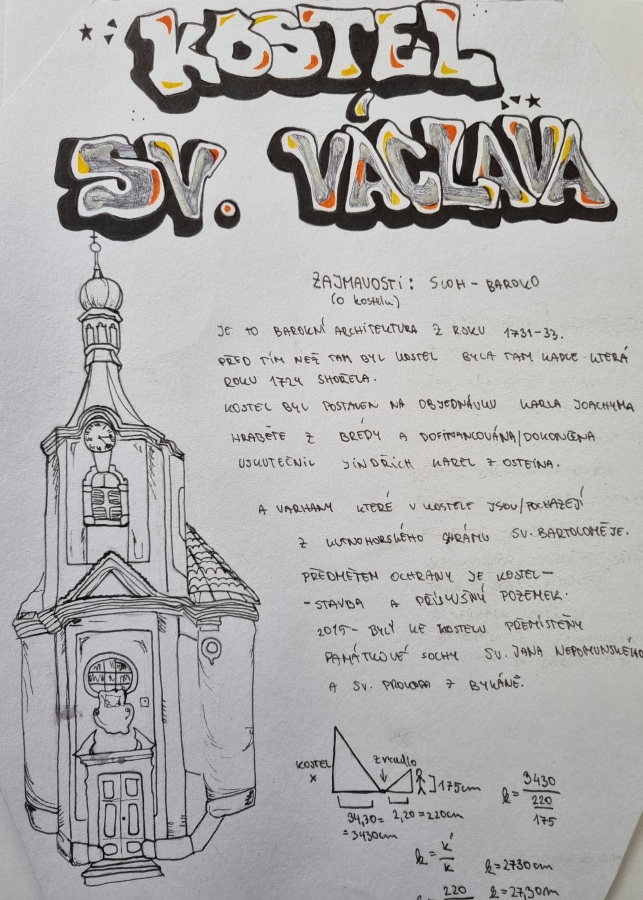 KOSTEL
SV. VÁCLAVA
ZAJMAVOSTI: SLOH - BAROKO
(o kostelu)
JE TO BAROKNÍ ARCHITEKTURA Z ROKU 1731-33.
PŘED TÍM NEŽ TAM BYL KOSTEL BYLA TAM KAPLE KTERÁ
ROKU 1724 SHOŘELA.
KOSTEL BYL POSTAVEN NA OBJEDNÁVKU KARLA JOACHYMA
HRABĚTE Z BRÉDY A DOFINANCOVÁNA/DOKONČENA
USKUTEČNIL JINDŘICH KAREL Z OSTEINA.
A VARHANY KTERÉ V KOSTELE JSOU/POCHÁZEJÍ
Z KUTNOHORSKÉHO CHRÁMU SV. BARTOLOMĚJE.
PŘEDMĚTEM OCHRANY JE KOSTEL -
- STAVBA A PŘÍSLUŠNÝ POZEMEK.
2015 - BYLY KE KOSTELU PŘEMÍSTĚNY
PAMÁTKOVÉ SOCHY SV. JANA NEPOMUNSKÉHO
A SV. PROKOPA Z BYKÁNĚ.
KOSTEL
x
zrcadlo
175cm
34,30 =
= 3430cm
2,20 = 220cm
k = 3430
220
175
k = k'
k
k = 2730cm
220
k = 27,30m